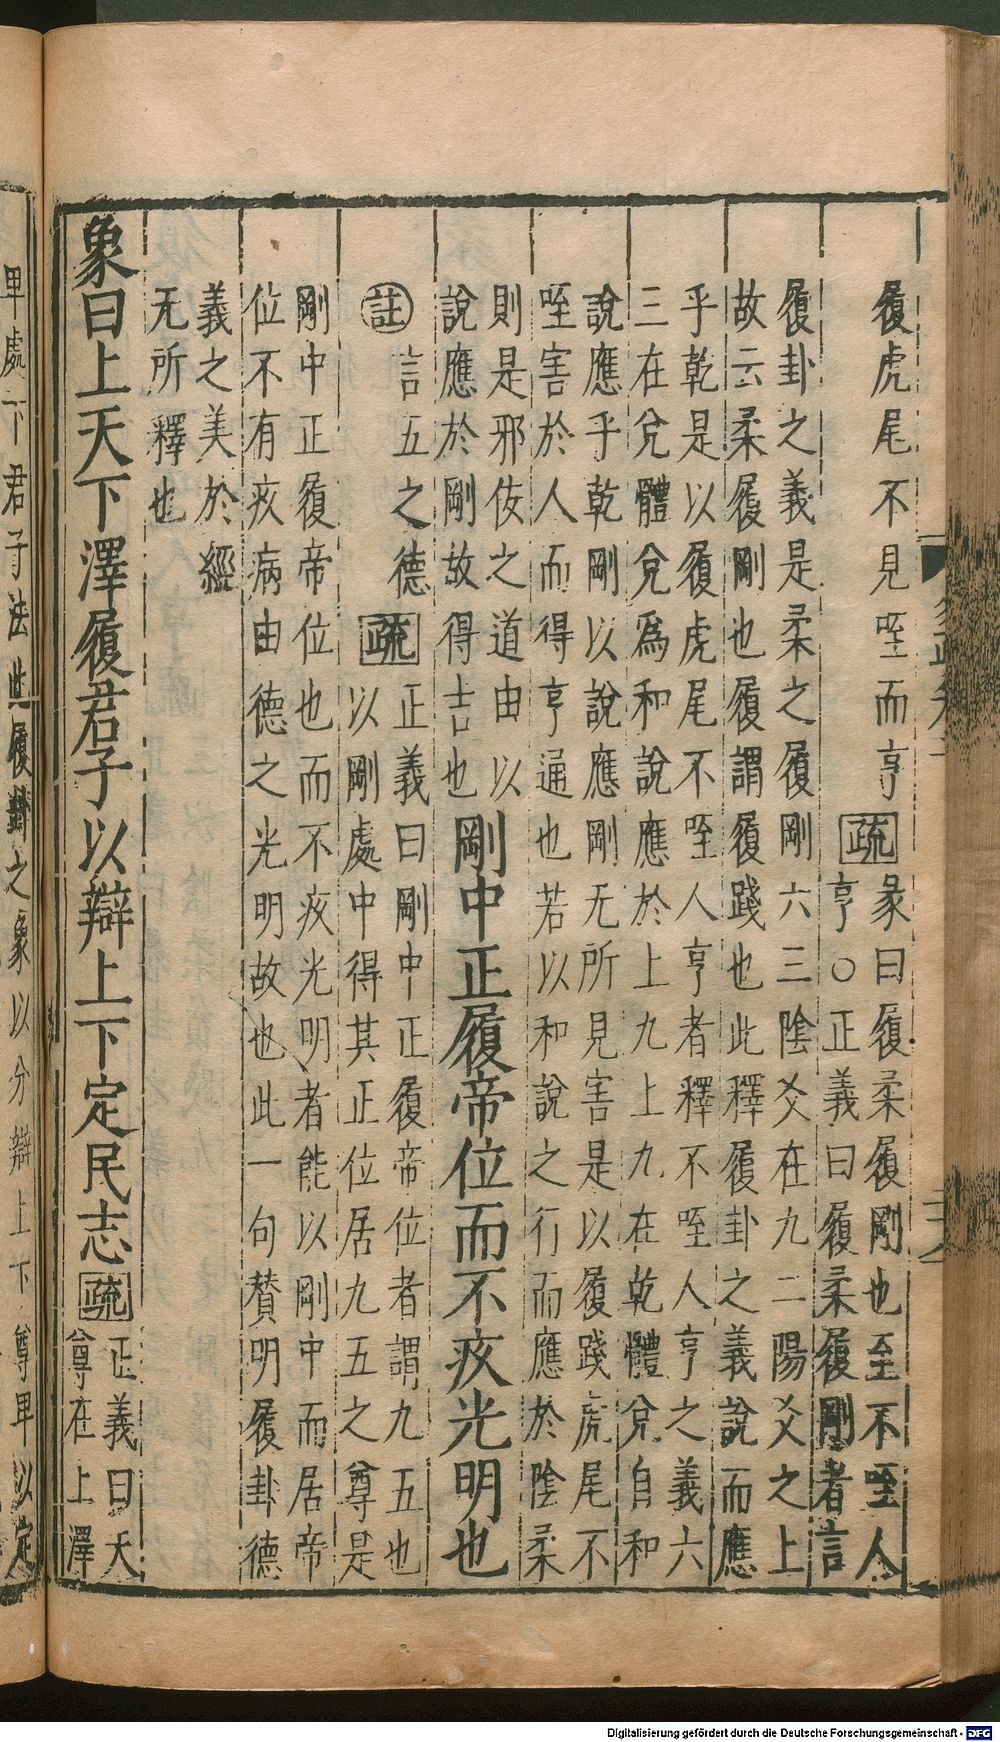 履虎尾不見咥而亨 疏 彖曰履柔履剛也至不咥人
亨○正義曰履柔履剛者言
履卦之義是柔之履剛六三陰爻在九二陽爻之上
故云柔履剛也履謂履踐也此釋履卦之義說而應
乎乾是以履虎尾不咥人亨者釋不咥人亨之義六
三在兌體兌爲和說應於上九上九在乾體兌自和
說應乎乾剛以說應剛无所見害是以履踐虎尾不
咥害於人而得亨通也若以和說之行而應於陰柔
則是邪佞之道由以
說應於剛故得吉也
剛中正履帝位而不疚光明也
註 言五之德 疏 正義曰剛中正履帝位者謂九五也
以剛處中得其正位居九五之尊是
剛中正履帝位也而不疚光明者能以剛中而居帝
位不有疚病由德之光明故也此一句贊明履卦德
義之美於經
无所釋也
象曰上天下澤履君子以辯上下定民志 疏 正義曰天
尊在上澤
卑處下君子法此履卦之象以分辯上下尊卑以定
Digitalisierung gefördert durch die Deutsche Forschungsgemeinschaft - DFG